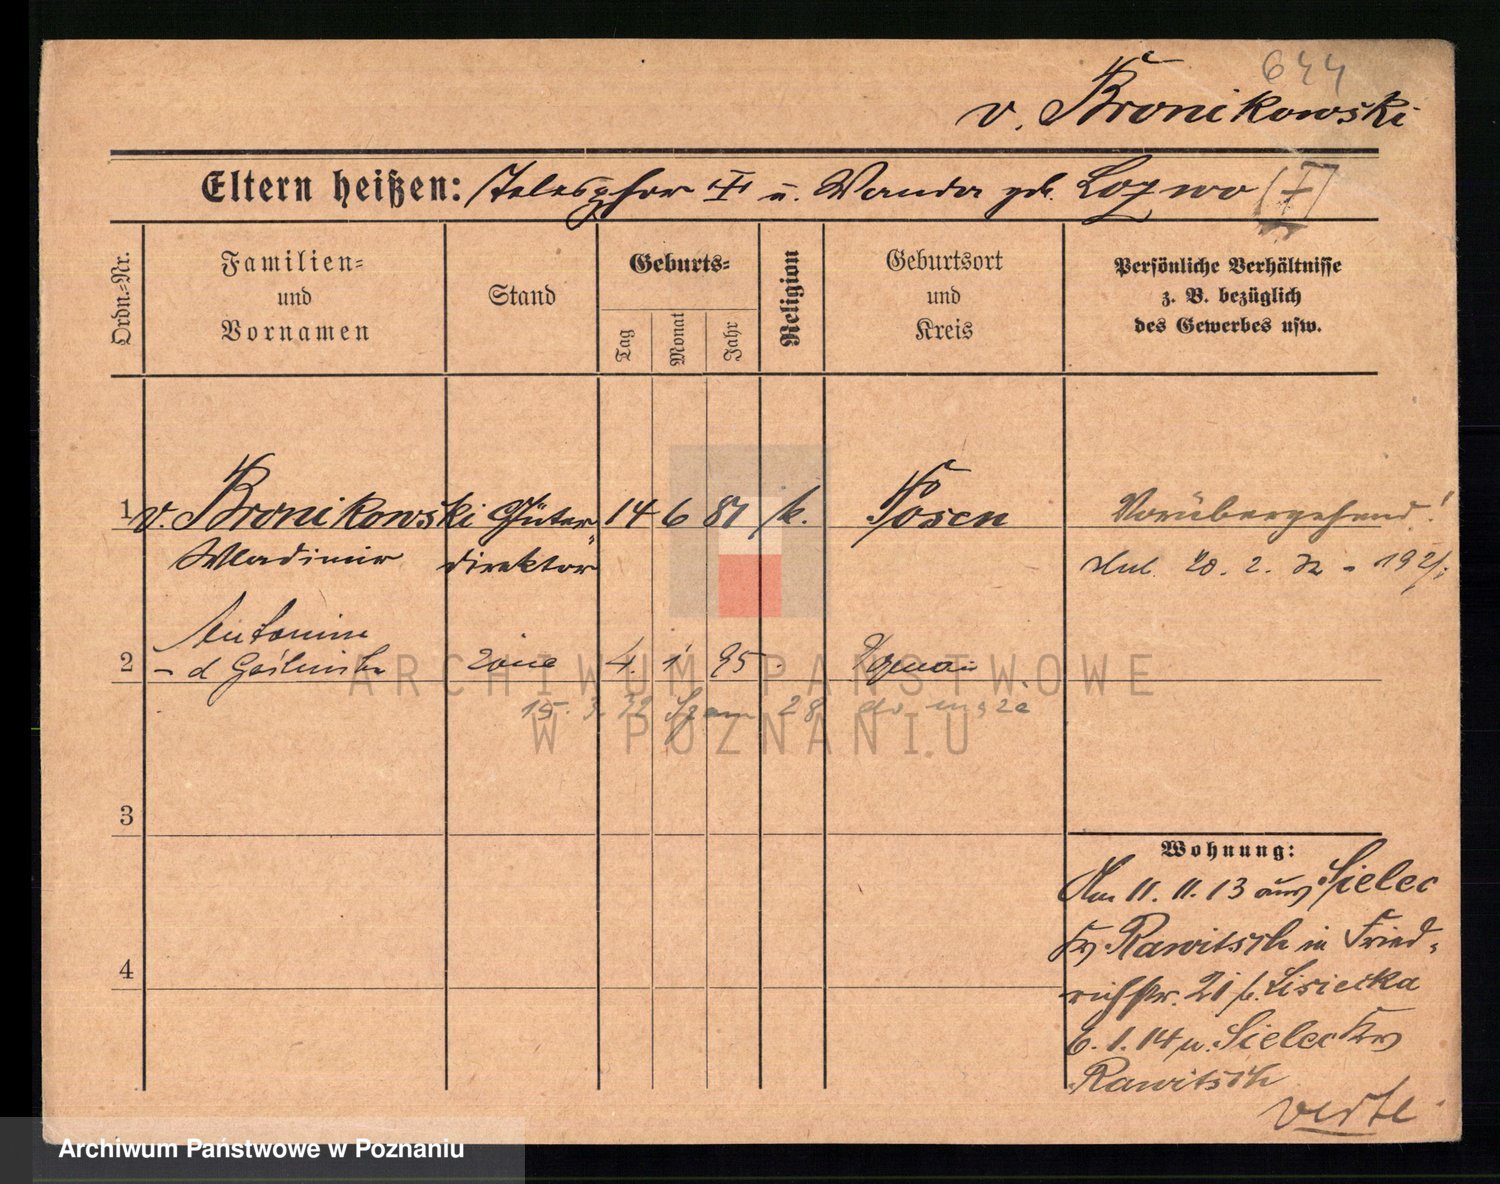 644
v. Bronikowski
Eltern heißen: Telesphor † u. Wanda geb. Lozwo (†)
Ordn.-Nr.
Familien-
und
Vornamen
Stand
Geburts-
Tag
Monat
Jahr
Religion
Geburtsort
und
Kreis
Persönliche Verhältnisse
z. B. bezüglich
des Gewerbes usw.
1 v. Bronikowski Güter- 14 6 81 k. Posen Vorübergehend!
Wladimir direktor 20. 2. 192
Antonina
2 - d żona 4. 1 95
15. 3. 32 28 do męża
3
4
Wohnung:
Am 11. 11. 13 aus Sielec
Kr. Rawitsch in Fried-
richstr. 21 b. Lisiecka
6. 1. 14 n. Sielec Krs
Rawitsch
verte
ARCHIWUM PAŃSTWOWE
W POZNANIU
Archiwum Państwowe w Poznaniu